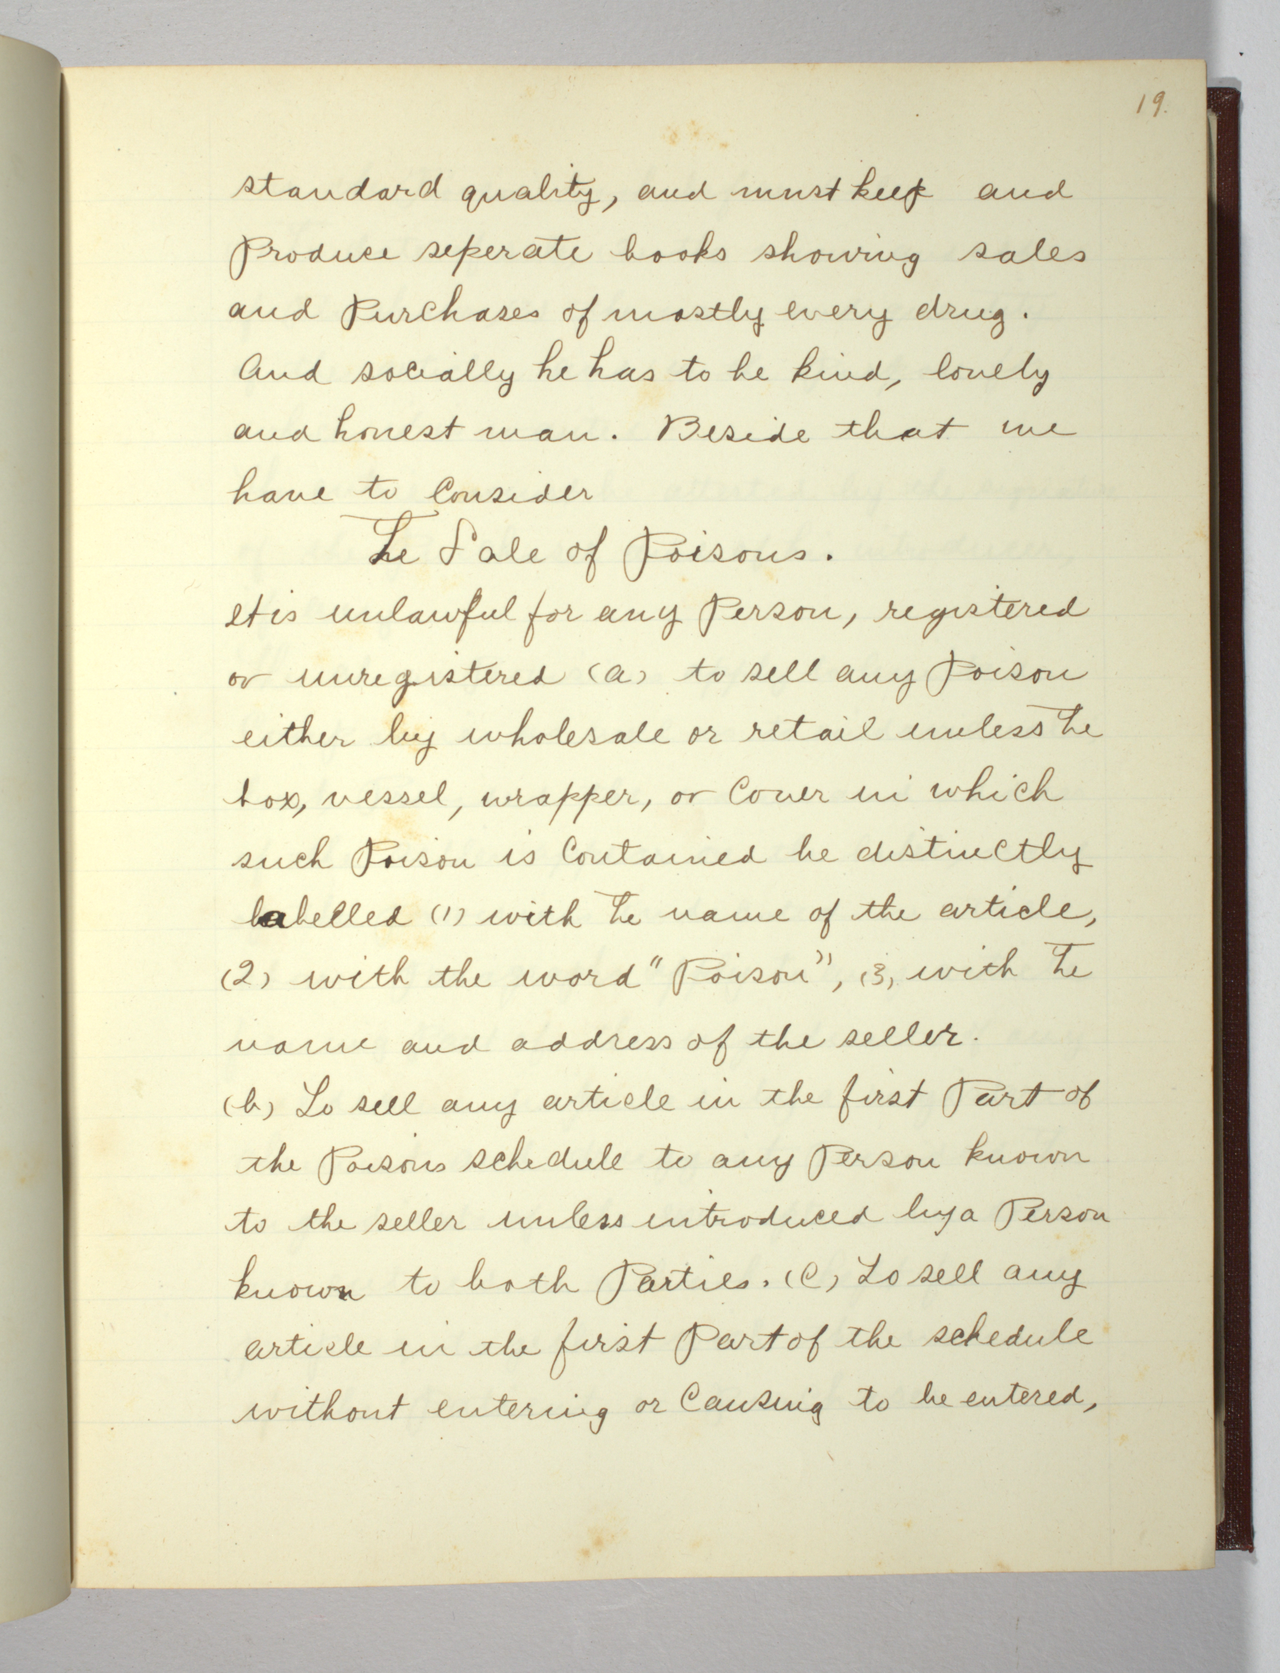 19.
standard quality, and must keep and
Produce seperate books showing sales
and Purchases of mostly every drug.
And socially he has to be kind, lovely
and honest man. Beside that we
have to Consider
The Sale of Poisons.
It is unlawful for any Person, registered
or unregistered (a) to sell any Poison
either by wholesale or retail unless The
box, vessel, wrapper, or Cover in which
such Poison is Contained be distinctly
labelled (1) with The name of the article,
(2) with the word "Poison", (3) with The
name and address of the seller.
(b) To sell any article in the first Part of
the Poisons schedule to any Person known
to the seller unless introduced by a Person
known to both Parties. (C) To sell any
article in the first Part of the schedule
without entering or Causing to be entered,